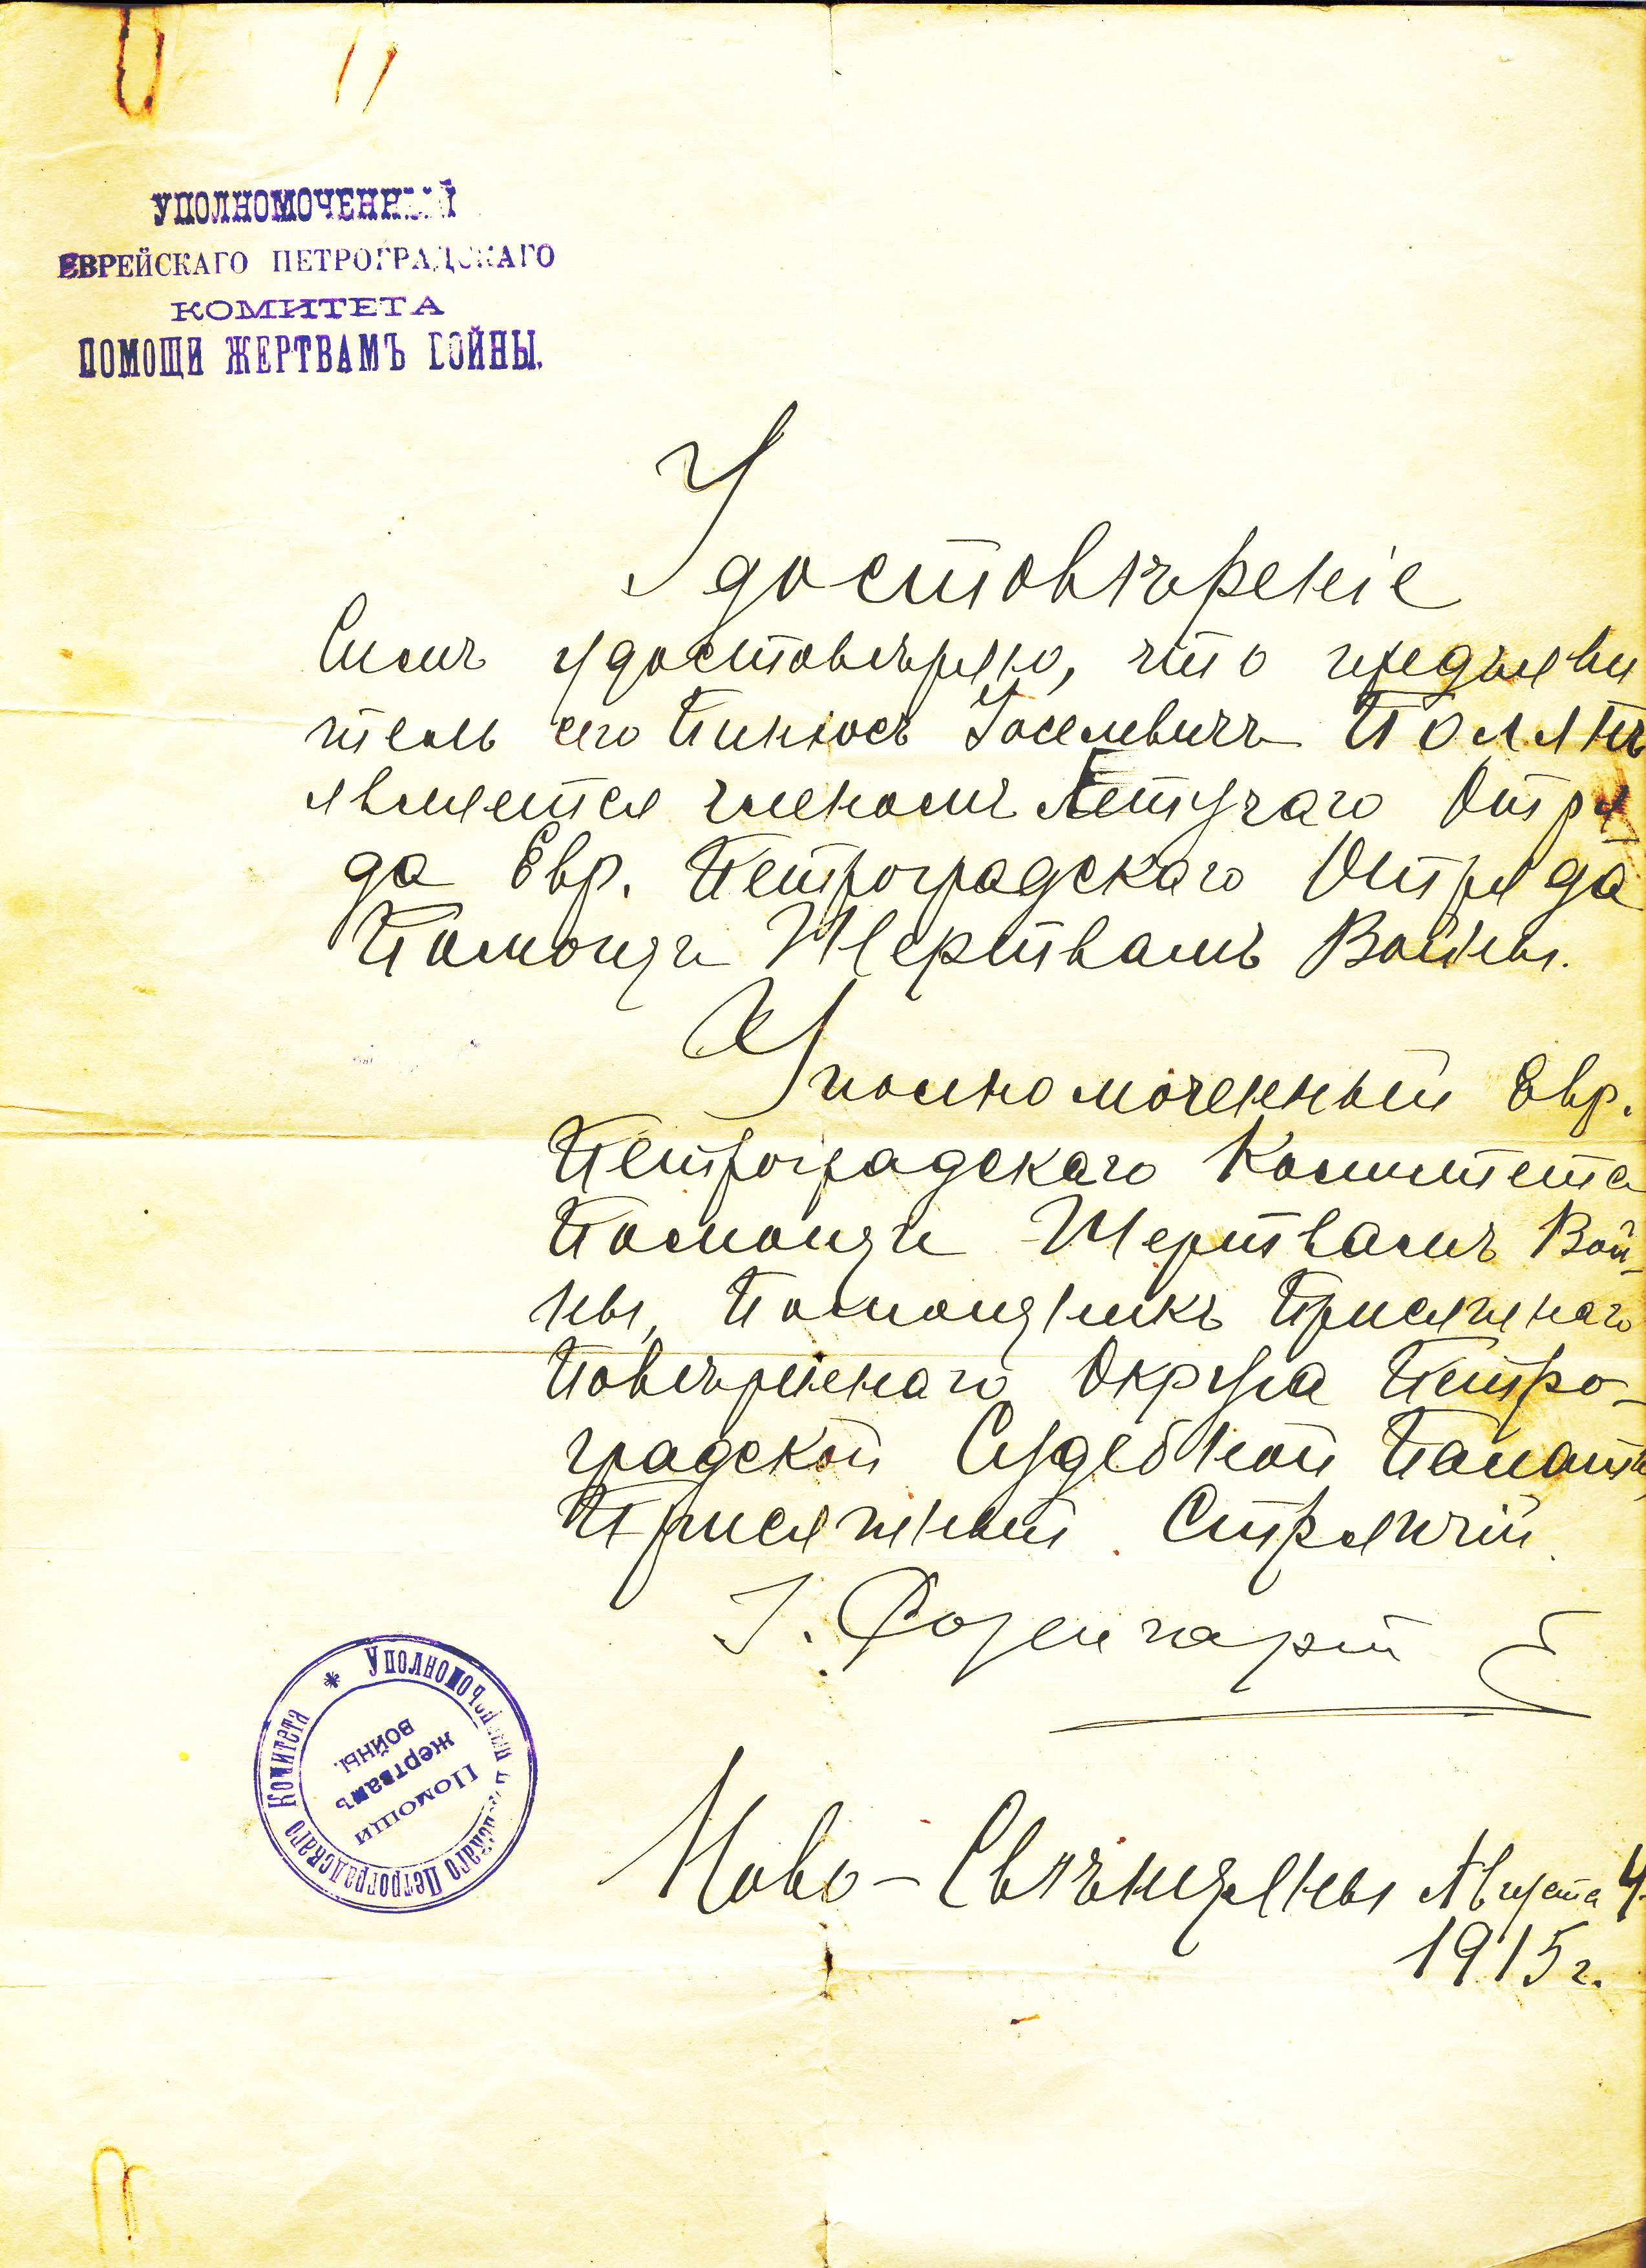 УПОЛНОМОЧЕННЫЙ
ЕВРЕЙСКАГО ПЕТРОГРАДСКАГО
КОМИТЕТА
ПОМОЩИ ЖЕРТВАМЪ ВОЙНЫ.
Удостовѣреніе
Симъ удостовѣряю, что предъяви
тель сего Пинхосъ Іоселевичъ ПОЛЯКЪ
является членомъ Летучаго Отря
да Евр. Петроградскаго Отряда
Помощи Жертвамъ Войны.
Уполномоченный Евр.
Петроградскаго Комитета
Помощи Жертвамъ Вой-
ны, Помощникъ Присяжнаго
Повѣреннаго Округа Петро-
градской Судебной Палаты,
Присяжный Стряпчій
І. Розенгартъ
Ново-Свѣнцяны Августа 4.
1915 г.
Уполномоченный Еврейскаго Петроградскаго Комитета
Помощи
жертвамъ
войны.